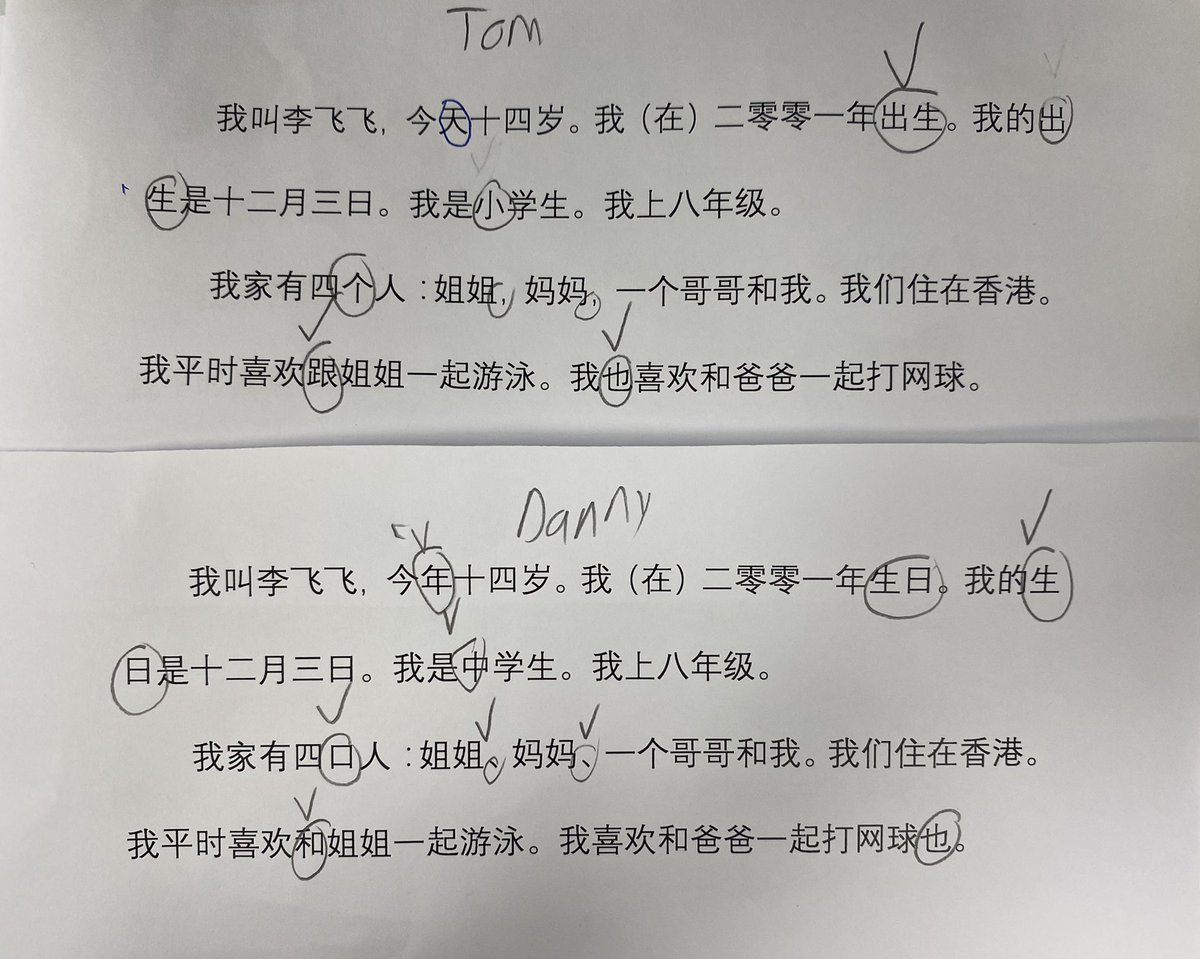 Tom
我叫李飞飞，今天十四岁。我（在）二零零一年出生。我的出
生是十二月三日。我是小学生。我上八年级。
我家有四个人：姐姐，妈妈，一个哥哥和我。我们住在香港。
我平时喜欢跟姐姐一起游泳。我也喜欢和爸爸一起打网球。
Danny
我叫李飞飞，今年十四岁。我（在）二零零一年生日。我的生
日是十二月三日。我是中学生。我上八年级。
我家有四口人：姐姐、妈妈、一个哥哥和我。我们住在香港。
我平时喜欢和姐姐一起游泳。我喜欢和爸爸一起打网球也。